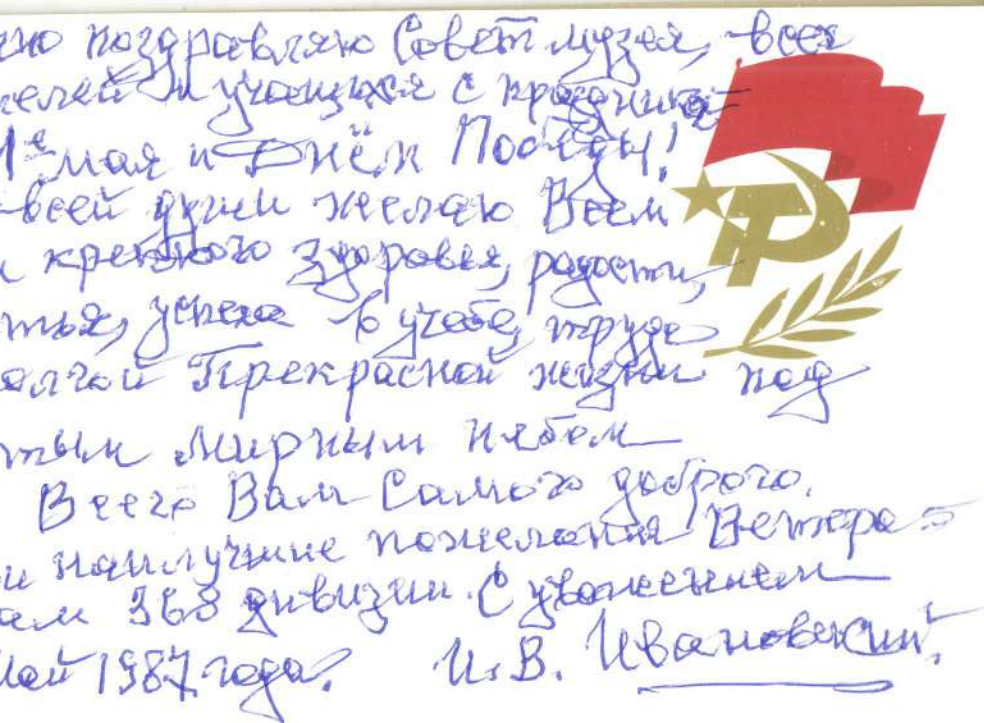 чно поздравляю Совет музея, всех
телей и учащихся с праздником
1ᵉ мая и Днём Победы!
всей души желаю Всем
крепкого здоровья, радости,
стья, успеха в учебе, труде
долгой Прекрасной жизни под
стым Мирным небом
Всего Вам Самого доброго.
и наилучшие пожелания Ветера=
нам 368 дивизии. С уважением
Май 1987 года. И.В. Ивановский.